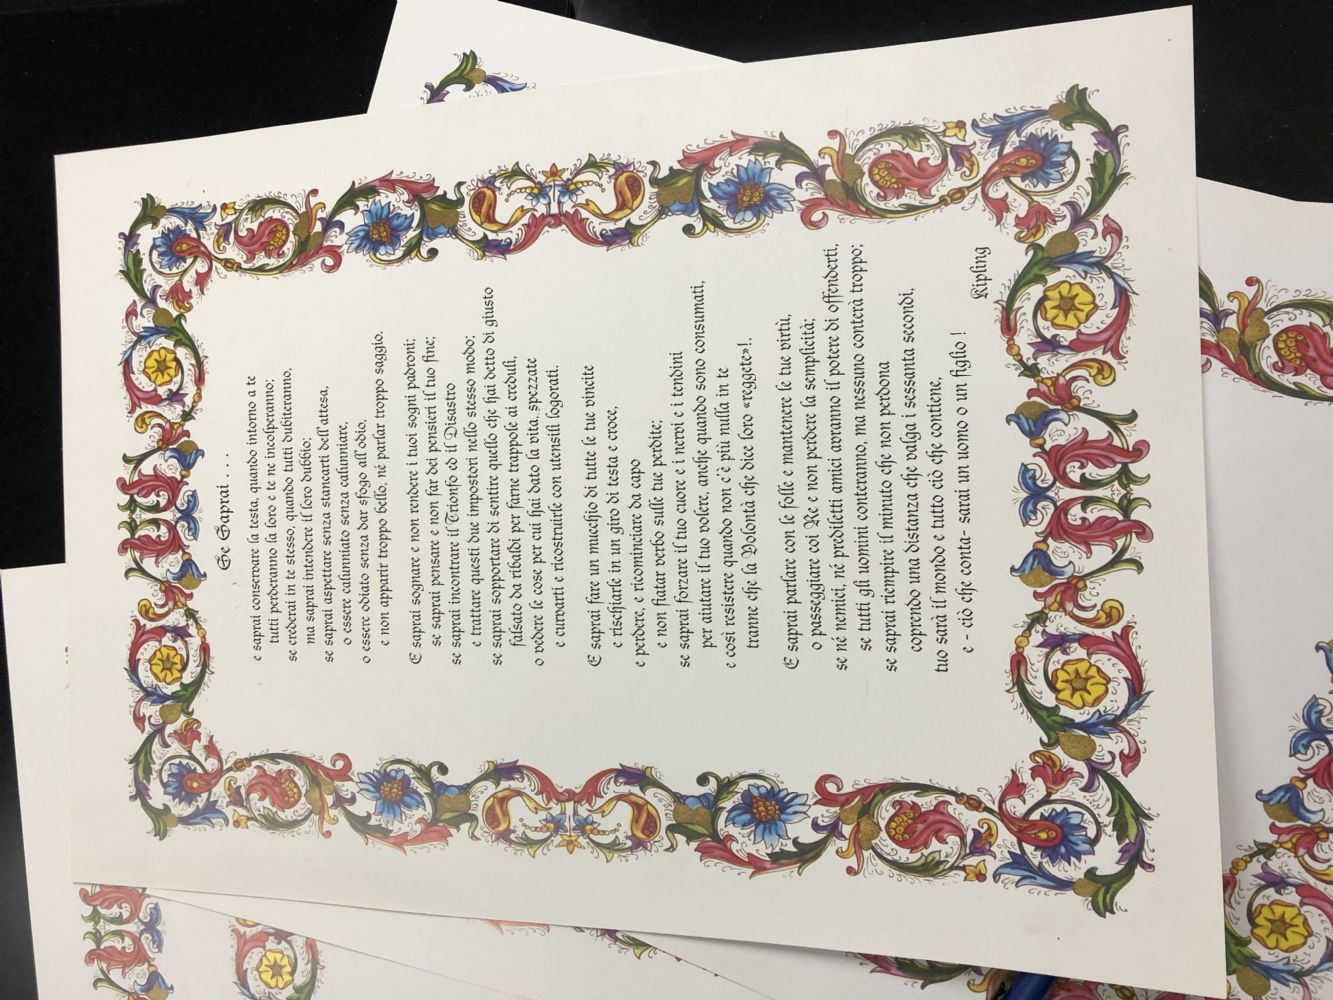 Se Saprai . . .
e saprai conservare la testa, quando intorno a te
tutti perderanno la loro e te ne incolperanno;
se crederai in te stesso, quando tutti dubiteranno,
ma saprai intendere il loro dubbio;
se saprai aspettare senza stancarti dell'attesa,
o essere calunniato senza calunniare,
o essere odiato senza dar sfogo all'odio,
e non apparir troppo bello, né parlar troppo saggio.
E saprai sognare e non rendere i tuoi sogni padroni;
se saprai pensare e non far dei pensieri il tuo fine;
se saprai incontrare il Trionfo ed il Disastro
e trattare questi due impostori nello stesso modo;
se saprai sopportare di sentire quello che hai detto di giusto
falsato da ribaldi per farne trappole ai creduli,
o vedere le cose per cui hai dato la vita, spezzate
e curvarti e ricostruirle con utensili logorati.
E saprai fare un mucchio di tutte le tue vincite
e rischiarle in un giro di testa e croce,
e perdere, e ricominciare da capo
e non fiatar verbo sulle tue perdite;
se saprai forzare il tuo cuore e i nervi e i tendini
per aiutare il tuo volere, anche quando sono consumati,
e così resistere quando non c'è più nulla in te
tranne che la Volontà che dice loro «reggete»!.
E saprai parlare con le folle e mantenere le tue virtù,
o passeggiare coi Re e non perdere la semplicità;
se né nemici, né prediletti amici avranno il potere di offenderti,
se tutti gli uomini conteranno, ma nessuno conterà troppo;
se saprai riempire il minuto che non perdona
coprendo una distanza che valga i sessanta secondi,
tuo sarà il mondo e tutto ciò che contiene,
e - ciò che conta- sarai un uomo o un figlio !
Kipling